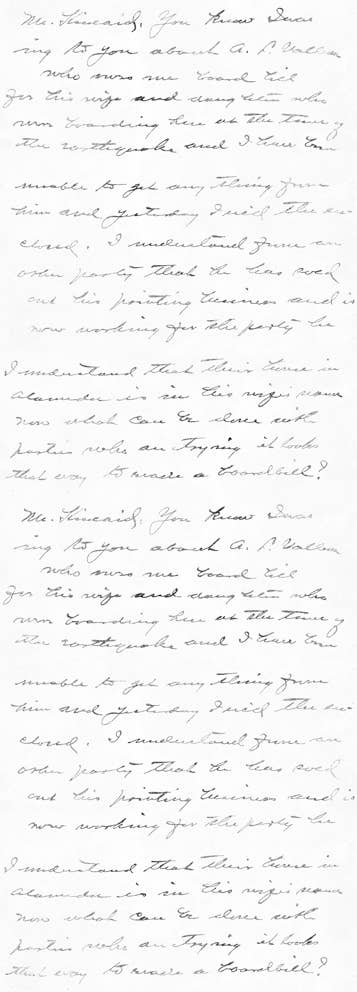 Mr. Kincaid, You know I was
ing to you about A. L.
who owes me board bill
for his wife and daughter who
were boarding here at the time of
the earthquake and I have been
unable to get any thing from
him and yesterday I the
closed. I understand from an
other party that he has sold
out his printing business and is
now working for the party he
I understand that their home in
Alameda is in his wife's name
now what can be done with
parties who are trying it looks
that way to evade a boardbill?
Mr. Kincaid, You know I was
ing to you about A. L.
who owes me board bill
for his wife and daughter who
were boarding here at the time of
the earthquake and I have been
unable to get any thing from
him and yesterday I the
closed. I understand from an
other party that he has sold
out his printing business and is
now working for the party he
I understand that their home in
Alameda is in his wife's name
now what can be done with
parties who are trying it looks
that way to evade a boardbill?